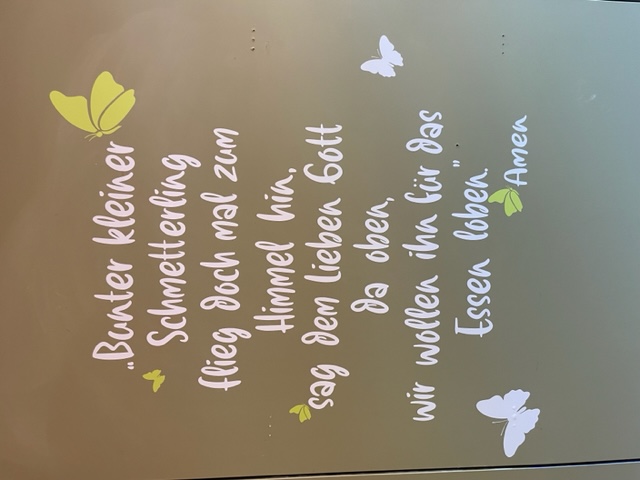 „Bunter kleiner
Schmetterling
flieg doch mal zum
Himmel hin,
sag dem lieben Gott
da oben,
wir wollen ihn für das
Essen loben."
Amen